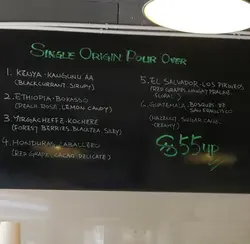 SINGLE ORIGIN POUR OVER
1. KENYA - KANGUNU AA
(BLACKCURRANT, SIRUPY)
2. ETHIOPIA - BOKASSO
(PEACH, ROSE, LEMON CANDY)
3. YIRGACHEFFZ - KOCHERE
(FOREST BERRIES, BLACKTEA, SILKY)
4. HONDURAS CABALLERO
(RED GRAPE, CACAO, DELICATE)
5. EL SALVADOR - LOS PIRINEOS
(RED GRAPE, FLORAL)
6. GUATEMALA, BOSQUES DE
SAN FRANCISCO
(HAZELNUT, SUGAR CANE,
CREAMY)
55 up